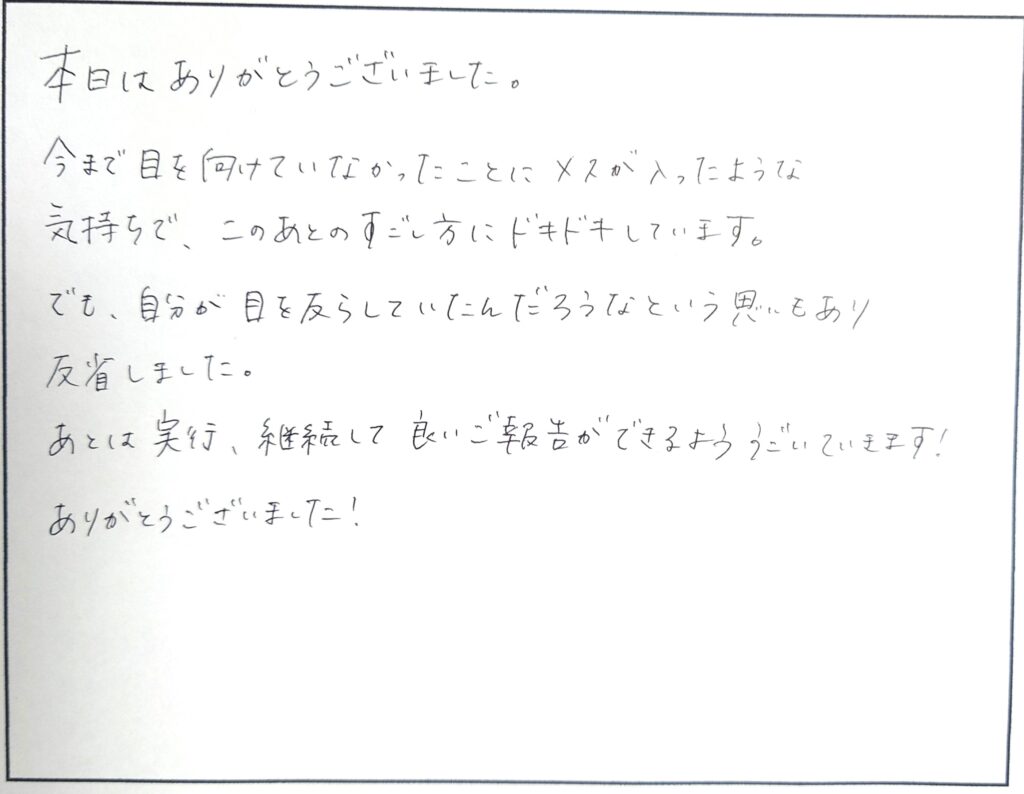 本日はありがとうございました。
今まで目を向けていなかったことにメスが入ったような
気持ちで、このあとのすごし方にドキドキしています。
でも、自分が目を反らしていたんだろうなという思いもあり
反省しました。
あとは実行、継続して良いご報告ができるよううごいていきます!
ありがとうございました!